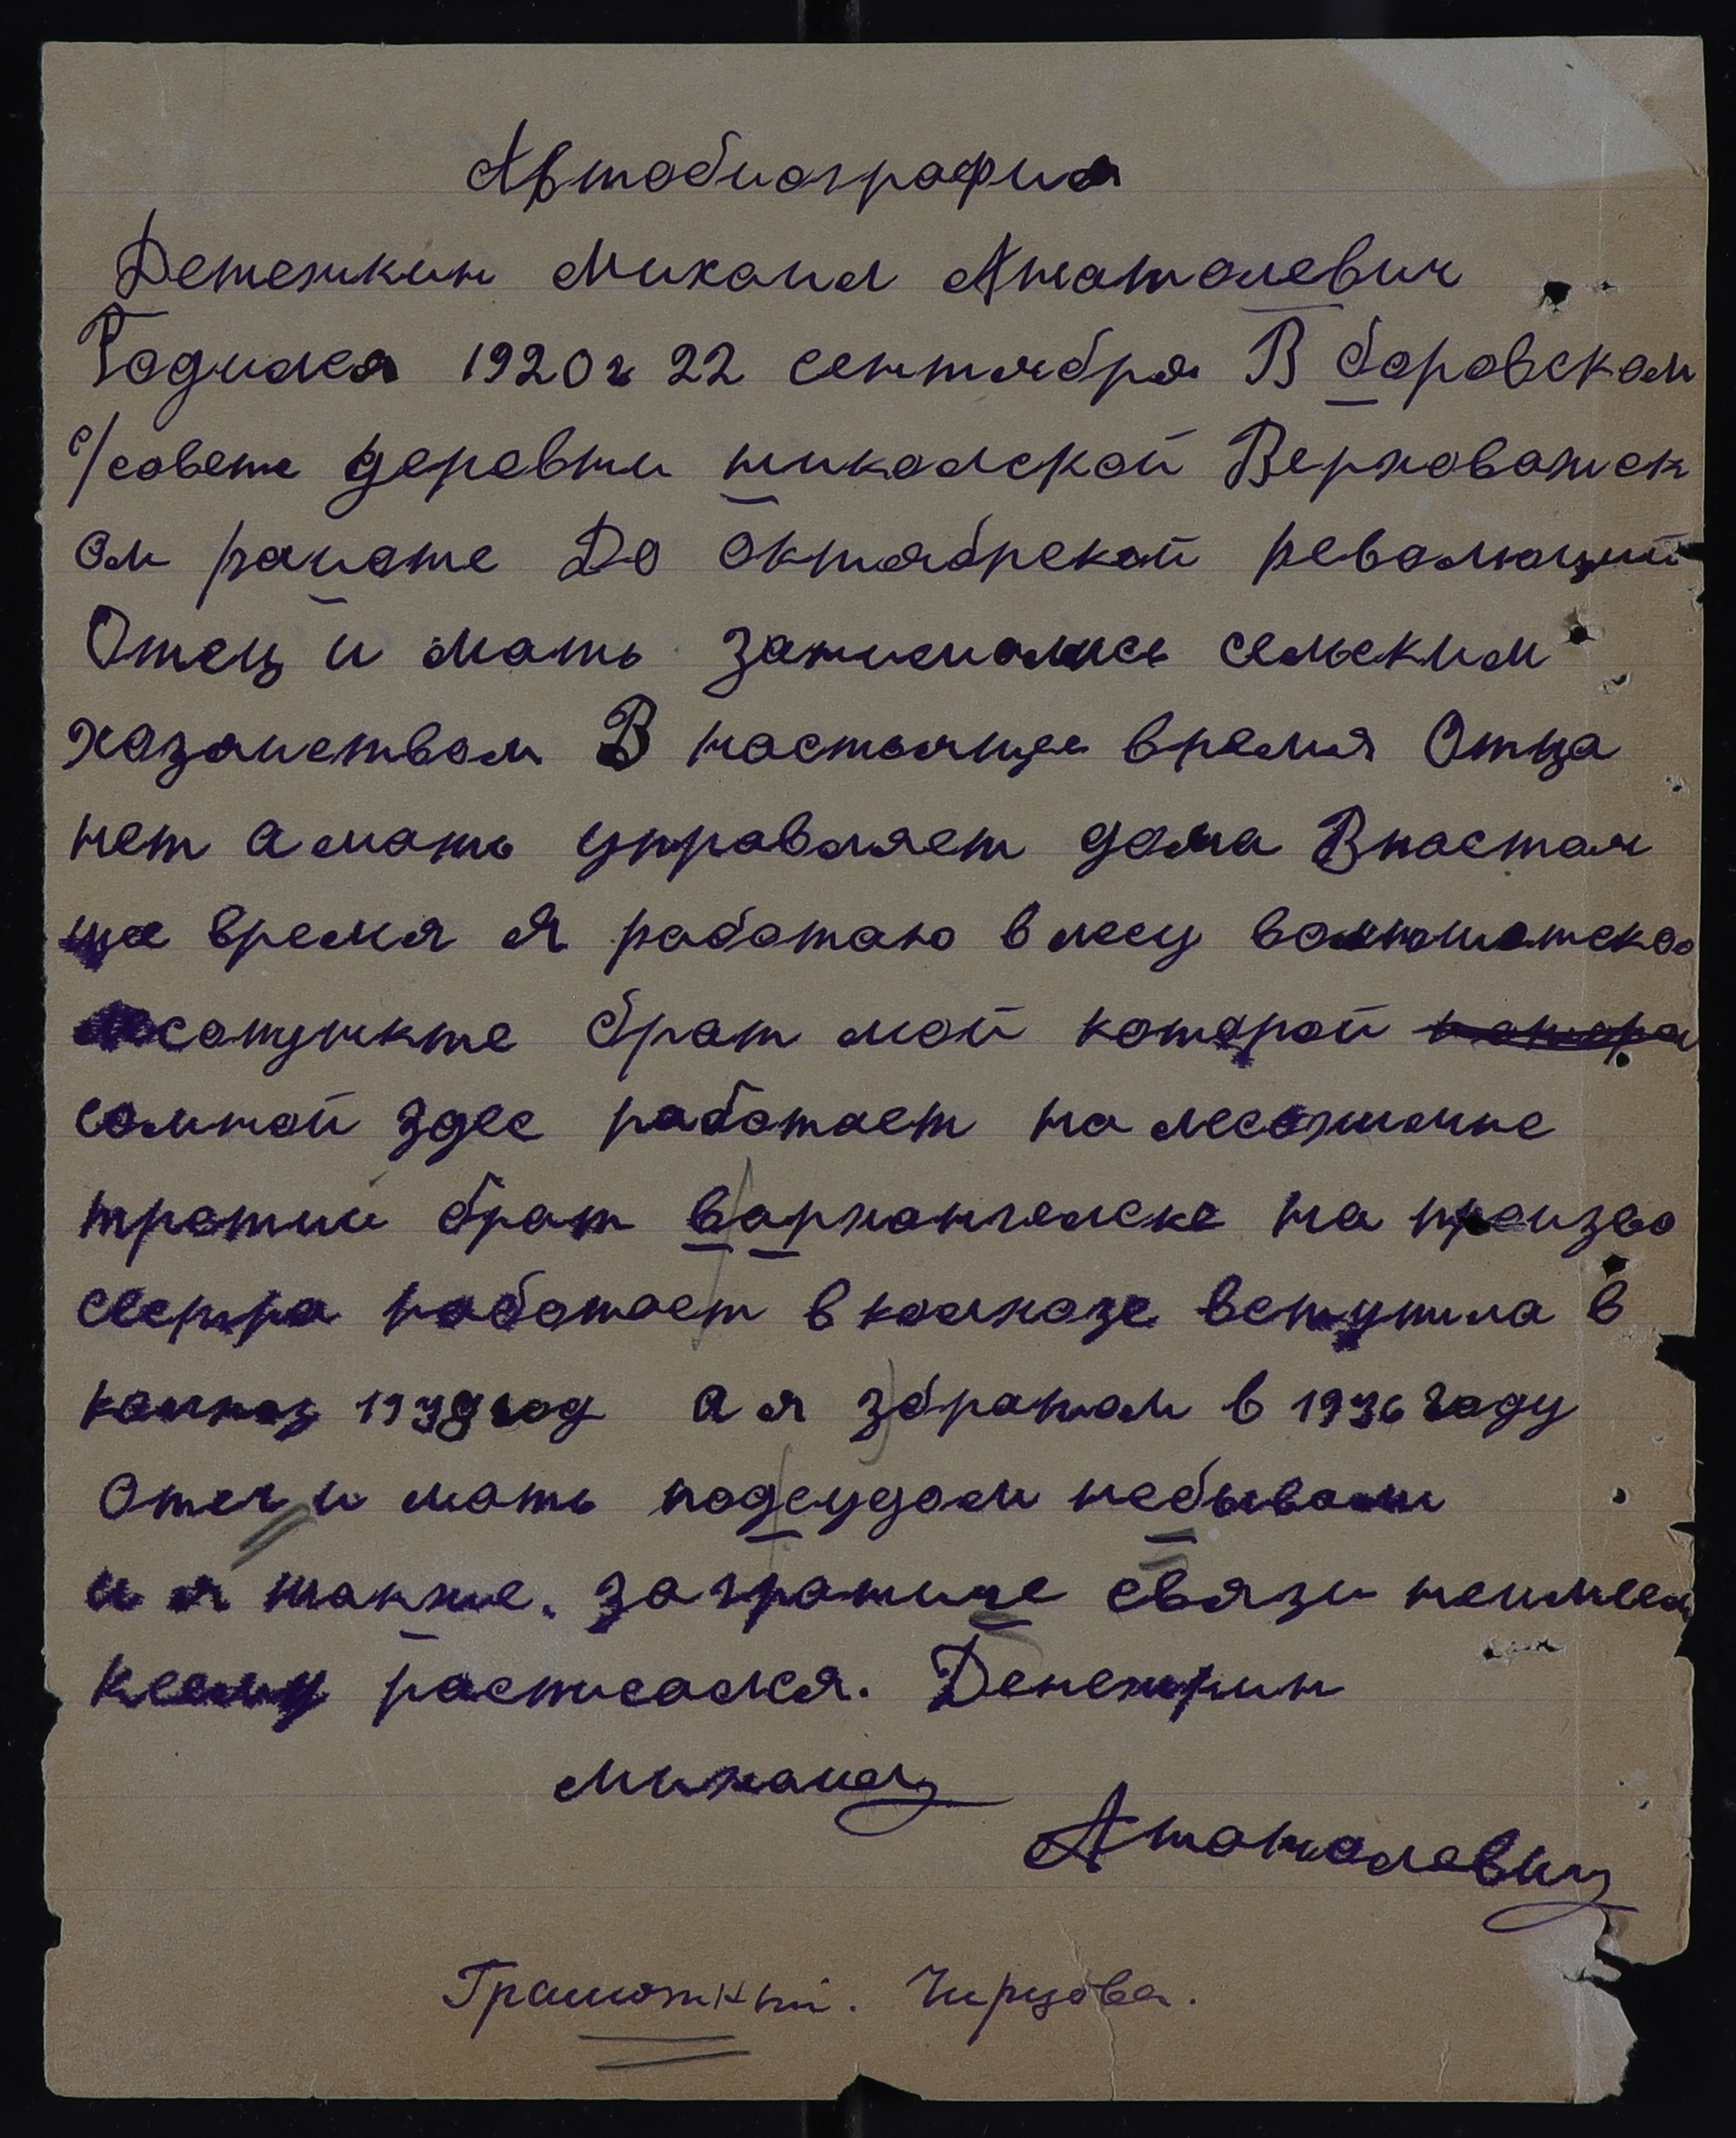 Автобиография
Денежкин Михаил Анатолевич
Родился 1920г 22 сентября В боровском
с/совете деревни никольской Верховажск
ом районе До октябрской революций
Отец и мать занимались сельским
хозаиством В настоящее время Отца
нет а мать управляет дома Внастоя
ще время я работаю в лесу
лесопункте брат мой которой
сомной здес работает на
третий брат вархангелске на произво
сестра работает в колхозе вступила в
колхоз 1938 год а я збратом в 1936 году
Отец и мать подсудом небывали
и я также. загранице связи неимеем
ксему росписался. Денежкин
Михаил
Анатолевич
Грамотный. Чирцова.